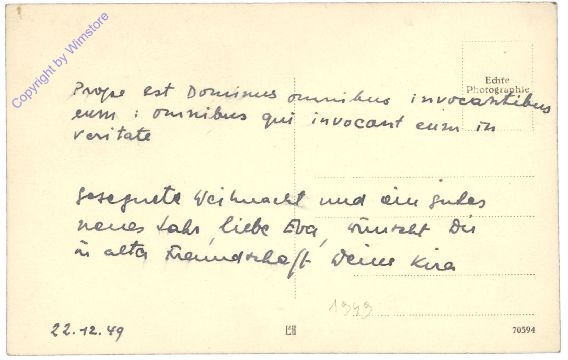 Copyright by Wimstore
Echte
Photographie
Prope est Dominus omnibus invocantibus
eum : omnibus qui invocant eum in
veritate
Gesegnete Weihnacht und ein gutes
neues Jahr, liebe Eva, wünscht Dir
in alter Freundschaft Deine Kira
1949
22.12.49
70594